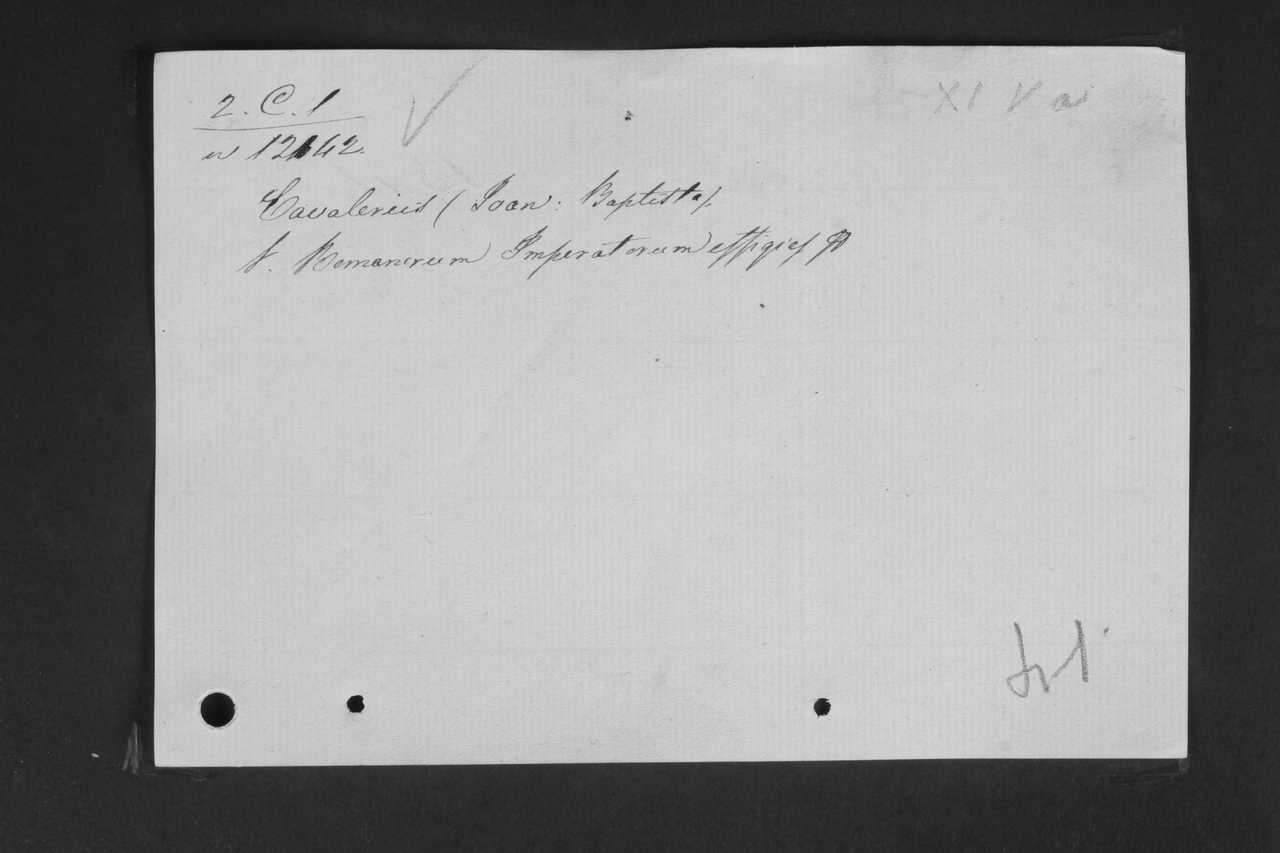 2. C. 1
XI V a
12142.
Cavaleriis (Joan: Baptista).
v. Romanorum Imperatorum effigies